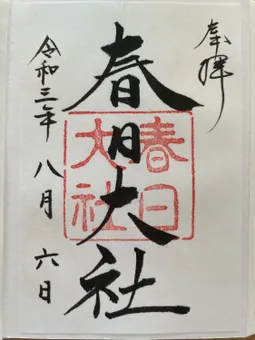 奉拝
春日大社
春日
大社
令和三年 八月 六日